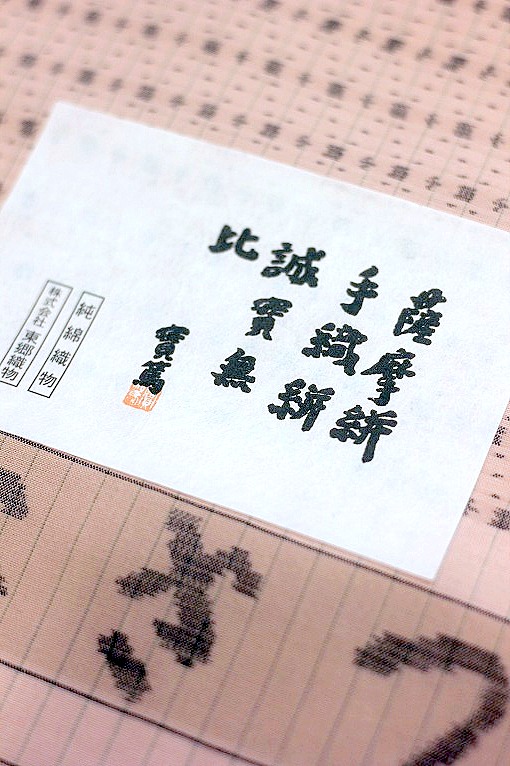 薩摩絣
手織絣
誠實無
比
實篤
純綿織物
株式会社 東郷織物